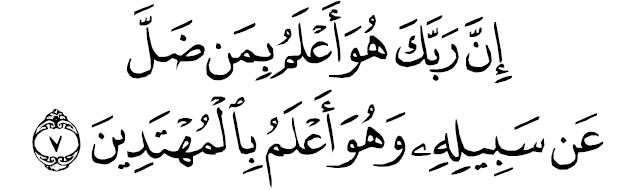 إِنَّ رَبَّكَ هُوَ أَعْلَمُ بِمَن ضَلَّ
عَن سَبِيلِهِۦ وَهُوَ أَعْلَمُ بِٱلْمُهْتَدِينَ ٧